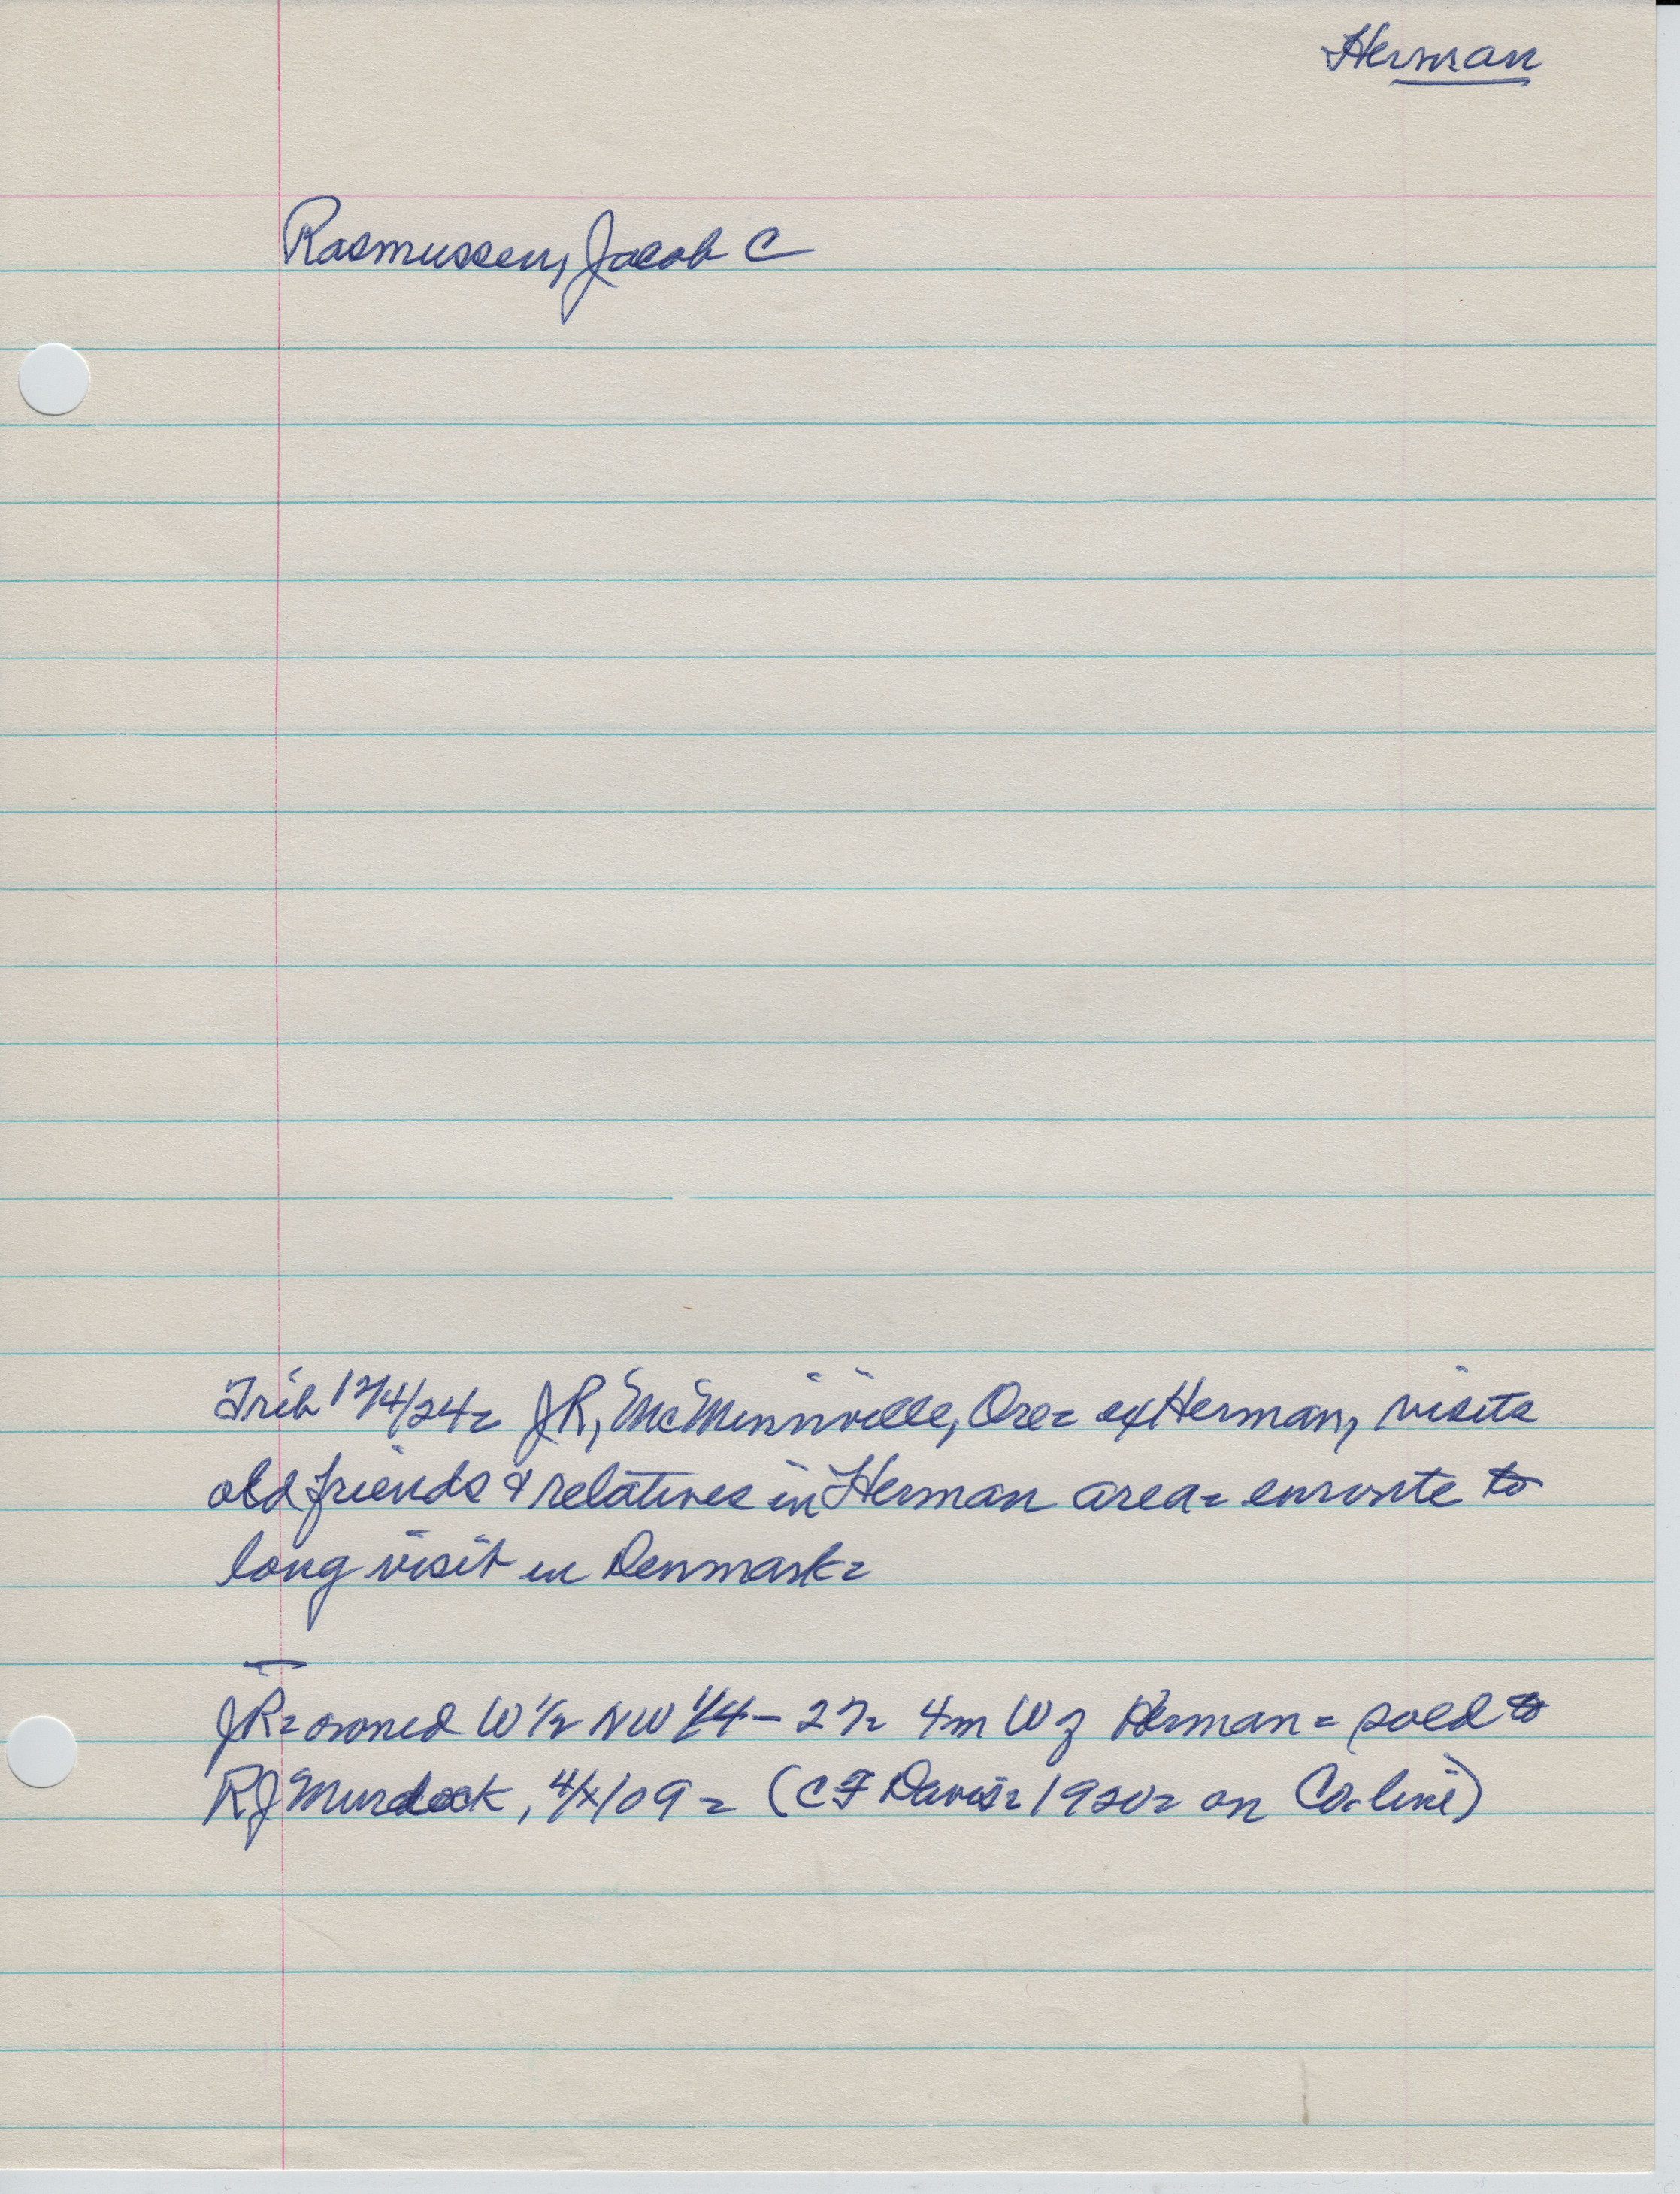 Herman
Rasmussen, Jacob C
Trib 12/4/24= JR, McMinnville, Ore= ex Herman, visits
old friends & relatives in Herman area= enroute to
long visit in Denmark=
JR= owned W 1/2 NW 1/4 - 27= 4m W of Herman = sold to
RJ Murdock, 4/x/09 = (CF Davis= 1920= on Co. line)